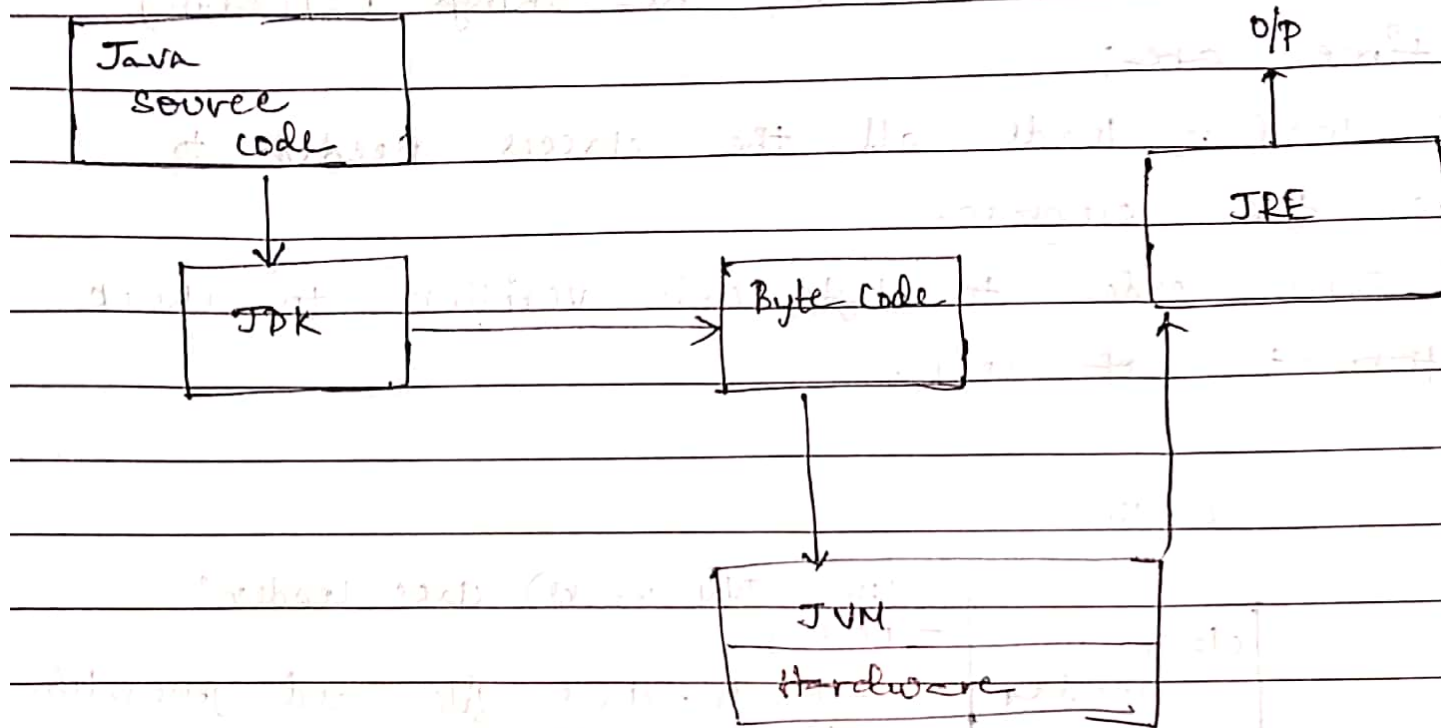 Java
source
code
O/P
JRE
JDK
Byte Code
JVM
Hardware